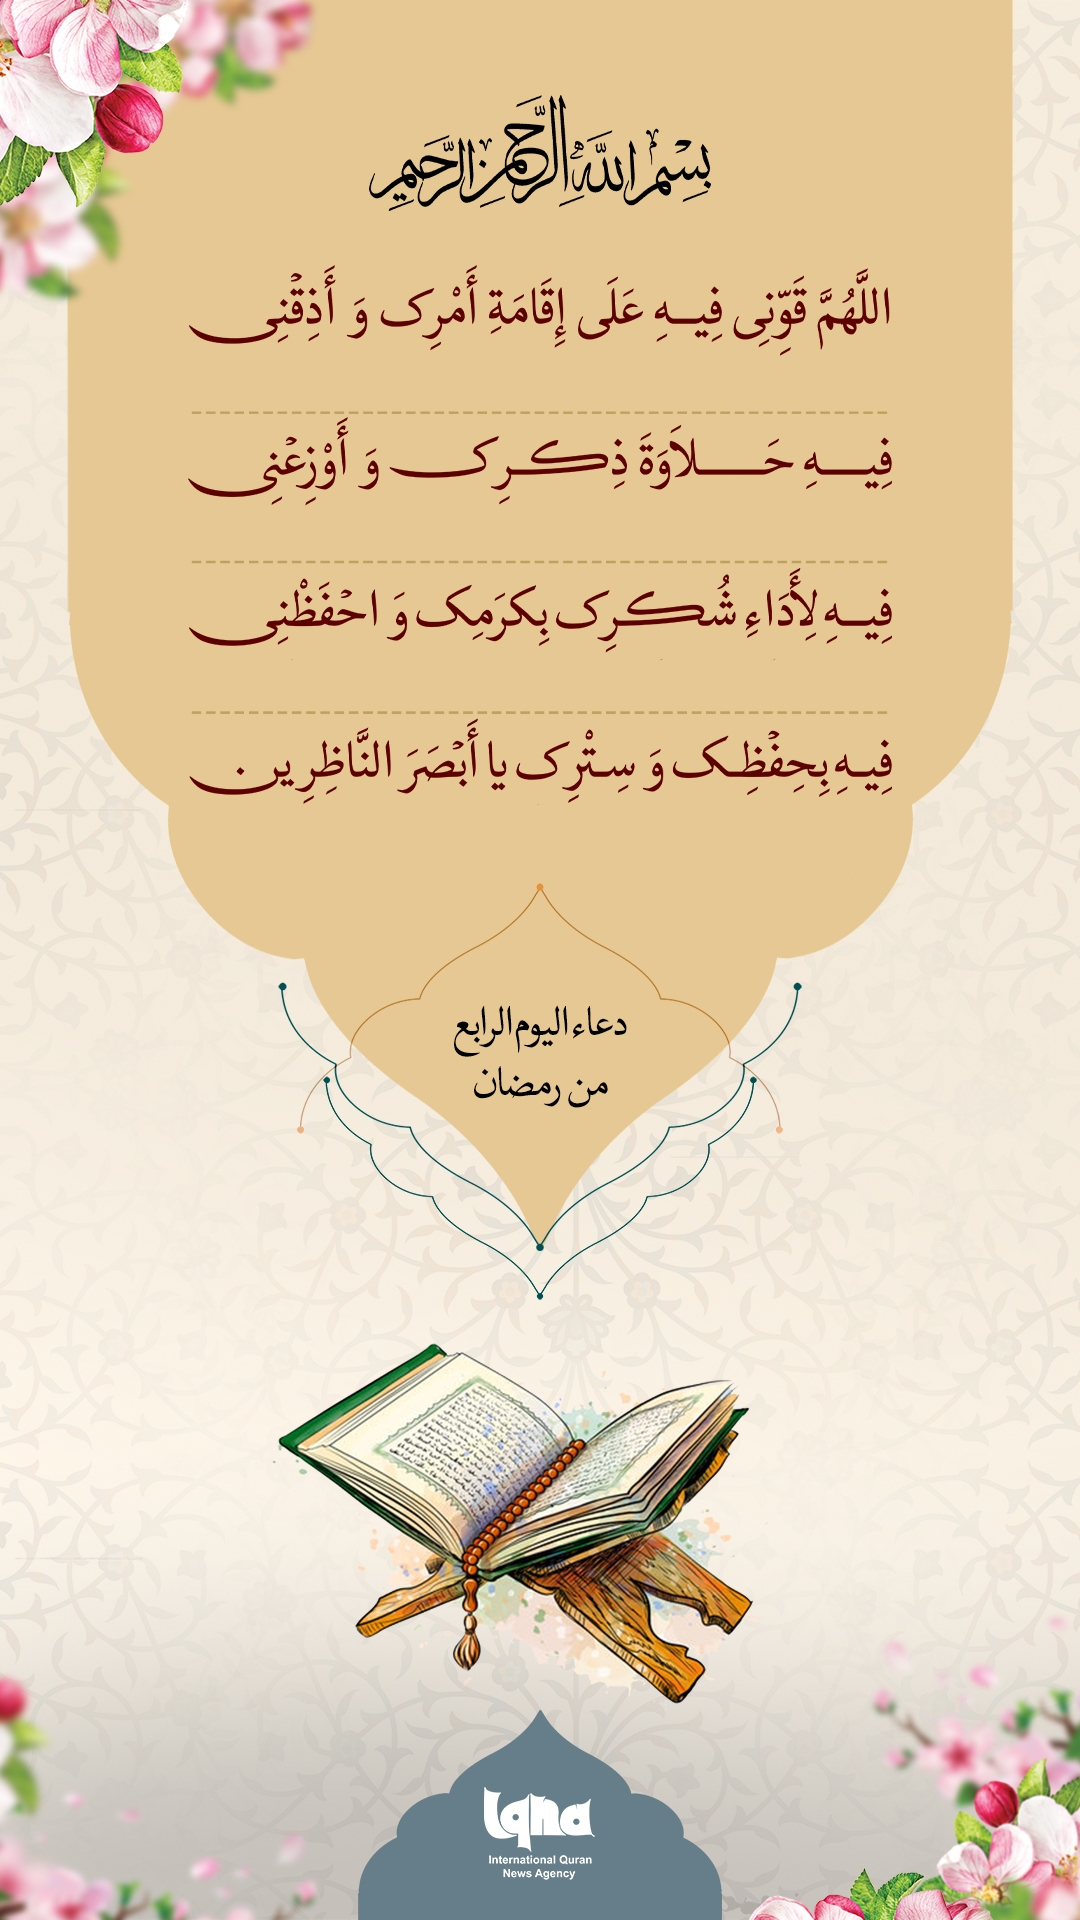 بِسْمِ اللَّهِ الرَّحْمٰنِ الرَّحِيمِ
اللَّهُمَّ قَوِّنِی فِیـهِ عَلَی إِقَامَةِ أَمْرِک وَ أَذِقْنِی
فِیـهِ حَـلاَوَةَ ذِکـرِک وَ أَوْزِعْنِی
فِیـهِ لِأَدَاءِ شُکـرِک بِکرَمِک وَ احْفَظْنِی
فِیـهِ بِحِفْظِک وَ سِتْرِک یا أَبْصَرَ النَّاظِرِین
دعاء الیوم الرابع
من رمضان
Iqna
International Quran
News Agency